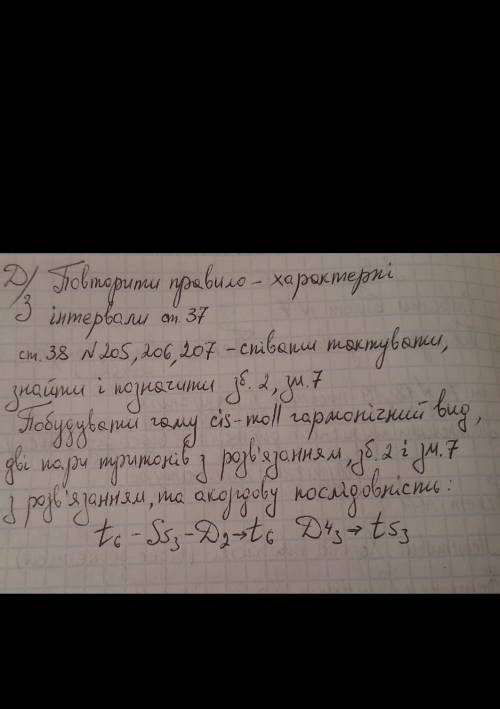 Д/З Повторити правило - характерні
інтервали ст. 37
ст. 38 N 205, 206, 207 - співати тактувати,
знайти і позначити зб. 2, зм. 7
Побудувати гаму cis-moll гармонічний вид,
дві пари тритонів з розв'язанням, зб. 2 і зм. 7
з розв'язанням, та акордову послідовність:
t6 - S53 - D2 → t6 D43 → t53